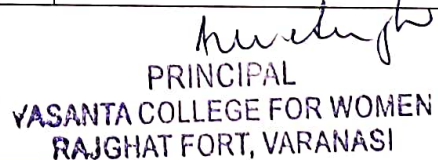 PRINCIPAL
VASANTA COLLEGE FOR WOMEN
RAJGHAT FORT, VARANASI